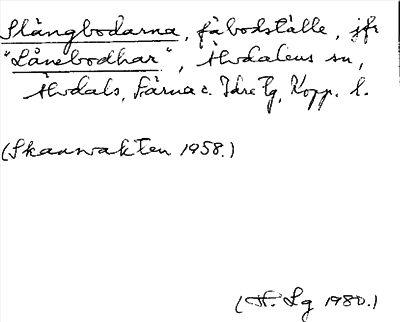 Slängbodarna, fäbodställe, jfr
"Lånebodhar", Älvdalens sn,
Älvdals, Särna o. Idre tg, Kopp. l.
(Skanvakten 1958.)
(H. Lg 1980.)